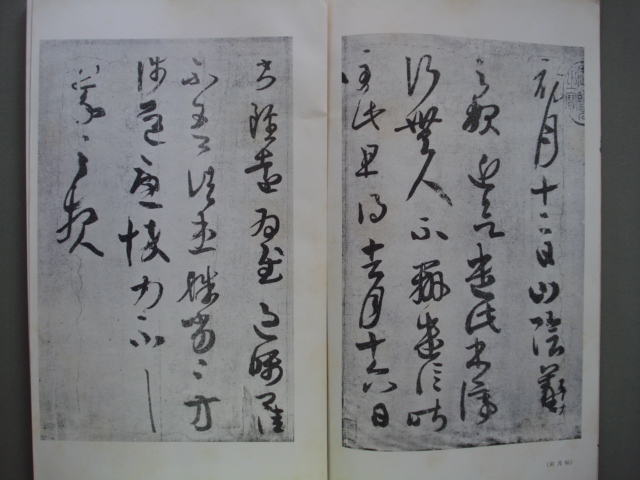 初月十二日山陰羲
之報近欲遣此書停
行無人不辦遣信昨
至此且得去月十六日
書雖遠為慰過囑
不吾諸患殊勞勞方
涉道憂悴力不具
羲之報
(初月帖)